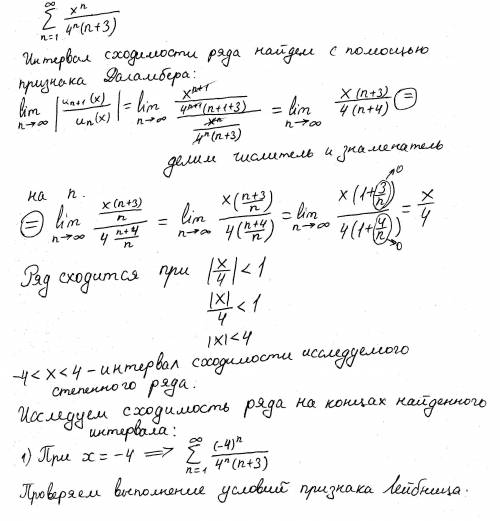 ∑_{n=1}^{∞} x^n / (4^n (n+3))
Интервал сходимости ряда найдем с помощью
признака Даламбера:
lim_{n→∞} |u_{n+1}(x) / u_n(x)| = lim_{n→∞} (x^{n+1} / (4^{n+1} (n+1+3))) / (x^n / (4^n (n+3))) = lim_{n→∞} x(n+3) / (4(n+4)) =
делим числитель и знаменатель
на n.
= lim_{n→∞} (x(n+3)/n) / (4 (n+4)/n) = lim_{n→∞} x((n+3)/n) / (4((n+4)/n)) = lim_{n→∞} x(1+3/n) / (4(1+4/n)) = x/4
→0
→0
Ряд сходится при |x/4| < 1
|x|/4 < 1
|x| < 4
-4 < x < 4 - интервал сходимости исследуемого
степенного ряда.
Исследуем сходимость ряда на концах найденного
интервала:
1) При x = -4 ⟹ ∑_{n=1}^{∞} (-4)^n / (4^n (n+3))
Проверяем выполнение условий признака Лейбница.